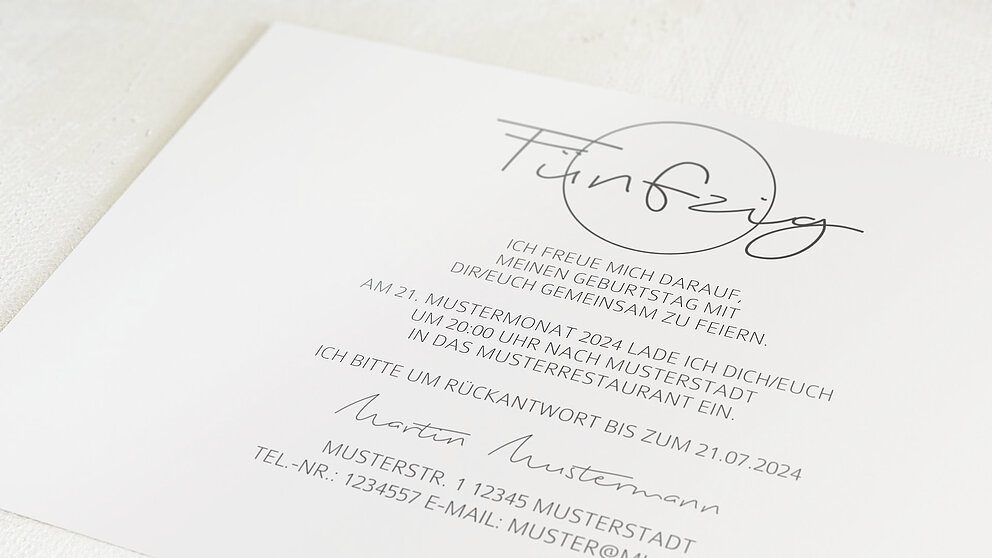 Fünfzig
ICH FREUE MICH DARAUF,
MEINEN GEBURTSTAG MIT
DIR/EUCH GEMEINSAM ZU FEIERN.
AM 21. MUSTERMONAT 2024 LADE ICH DICH/EUCH
UM 20:00 UHR NACH MUSTERSTADT
IN DAS MUSTERRESTAURANT EIN.
ICH BITTE UM RÜCKANTWORT BIS ZUM 21.07.2024
Martin Mustermann
MUSTERSTR. 1 12345 MUSTERSTADT
TEL.-NR.: 1234557 E-MAIL: